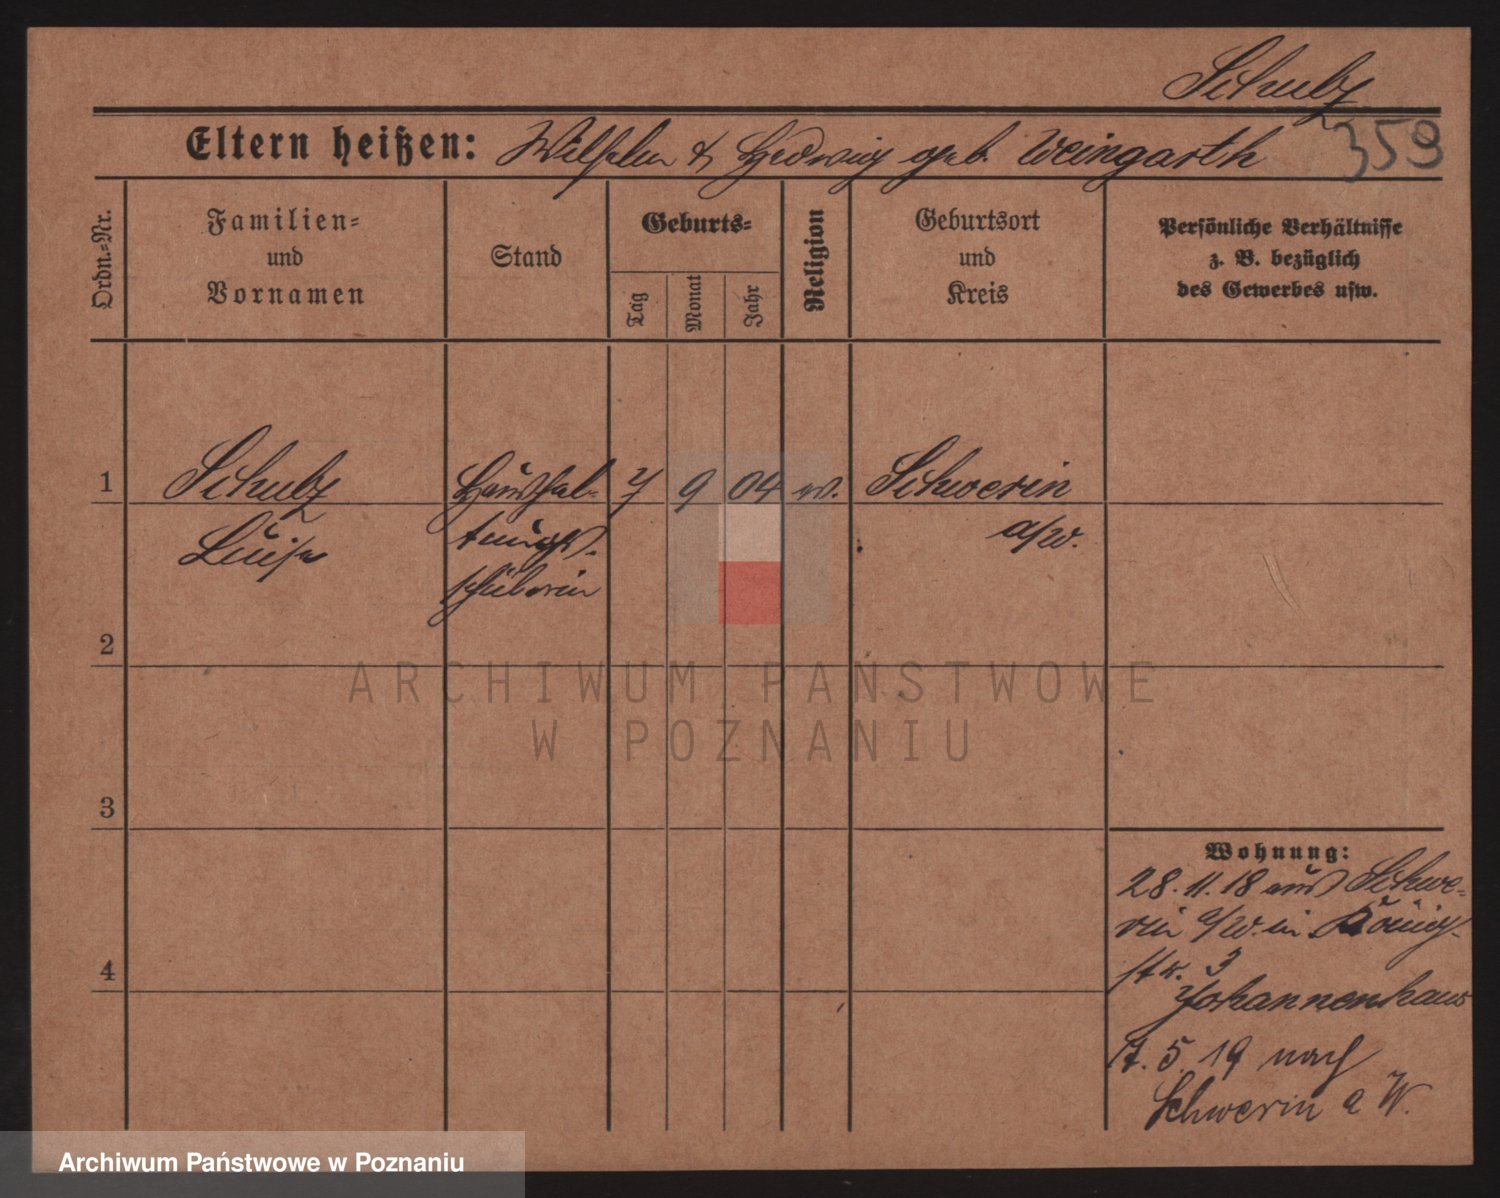 Schulz
359
Eltern heißen: Wilhelm & Hedwig geb. Weingarth
Ordn.-Nr.
Familien-
und
Vornamen
Stand
Geburts-
Tag
Monat
Jahr
Religion
Geburtsort
und
Kreis
Persönliche Verhältnisse
z. B. bezüglich
des Gewerbes usw.
1
Schulz
Luise
Haushal-
tungs-
schülerin
7
9
04
ev.
Schwerin
a/W.
2
3
4
Wohnung:
28.11.18 aus Schwe-
rin a/W. in König-
str. 3
Johannenhaus
17.5.19 nach
Schwerin a W.
ARCHIWUM PAŃSTWOWE
W POZNANIU
Archiwum Państwowe w Poznaniu